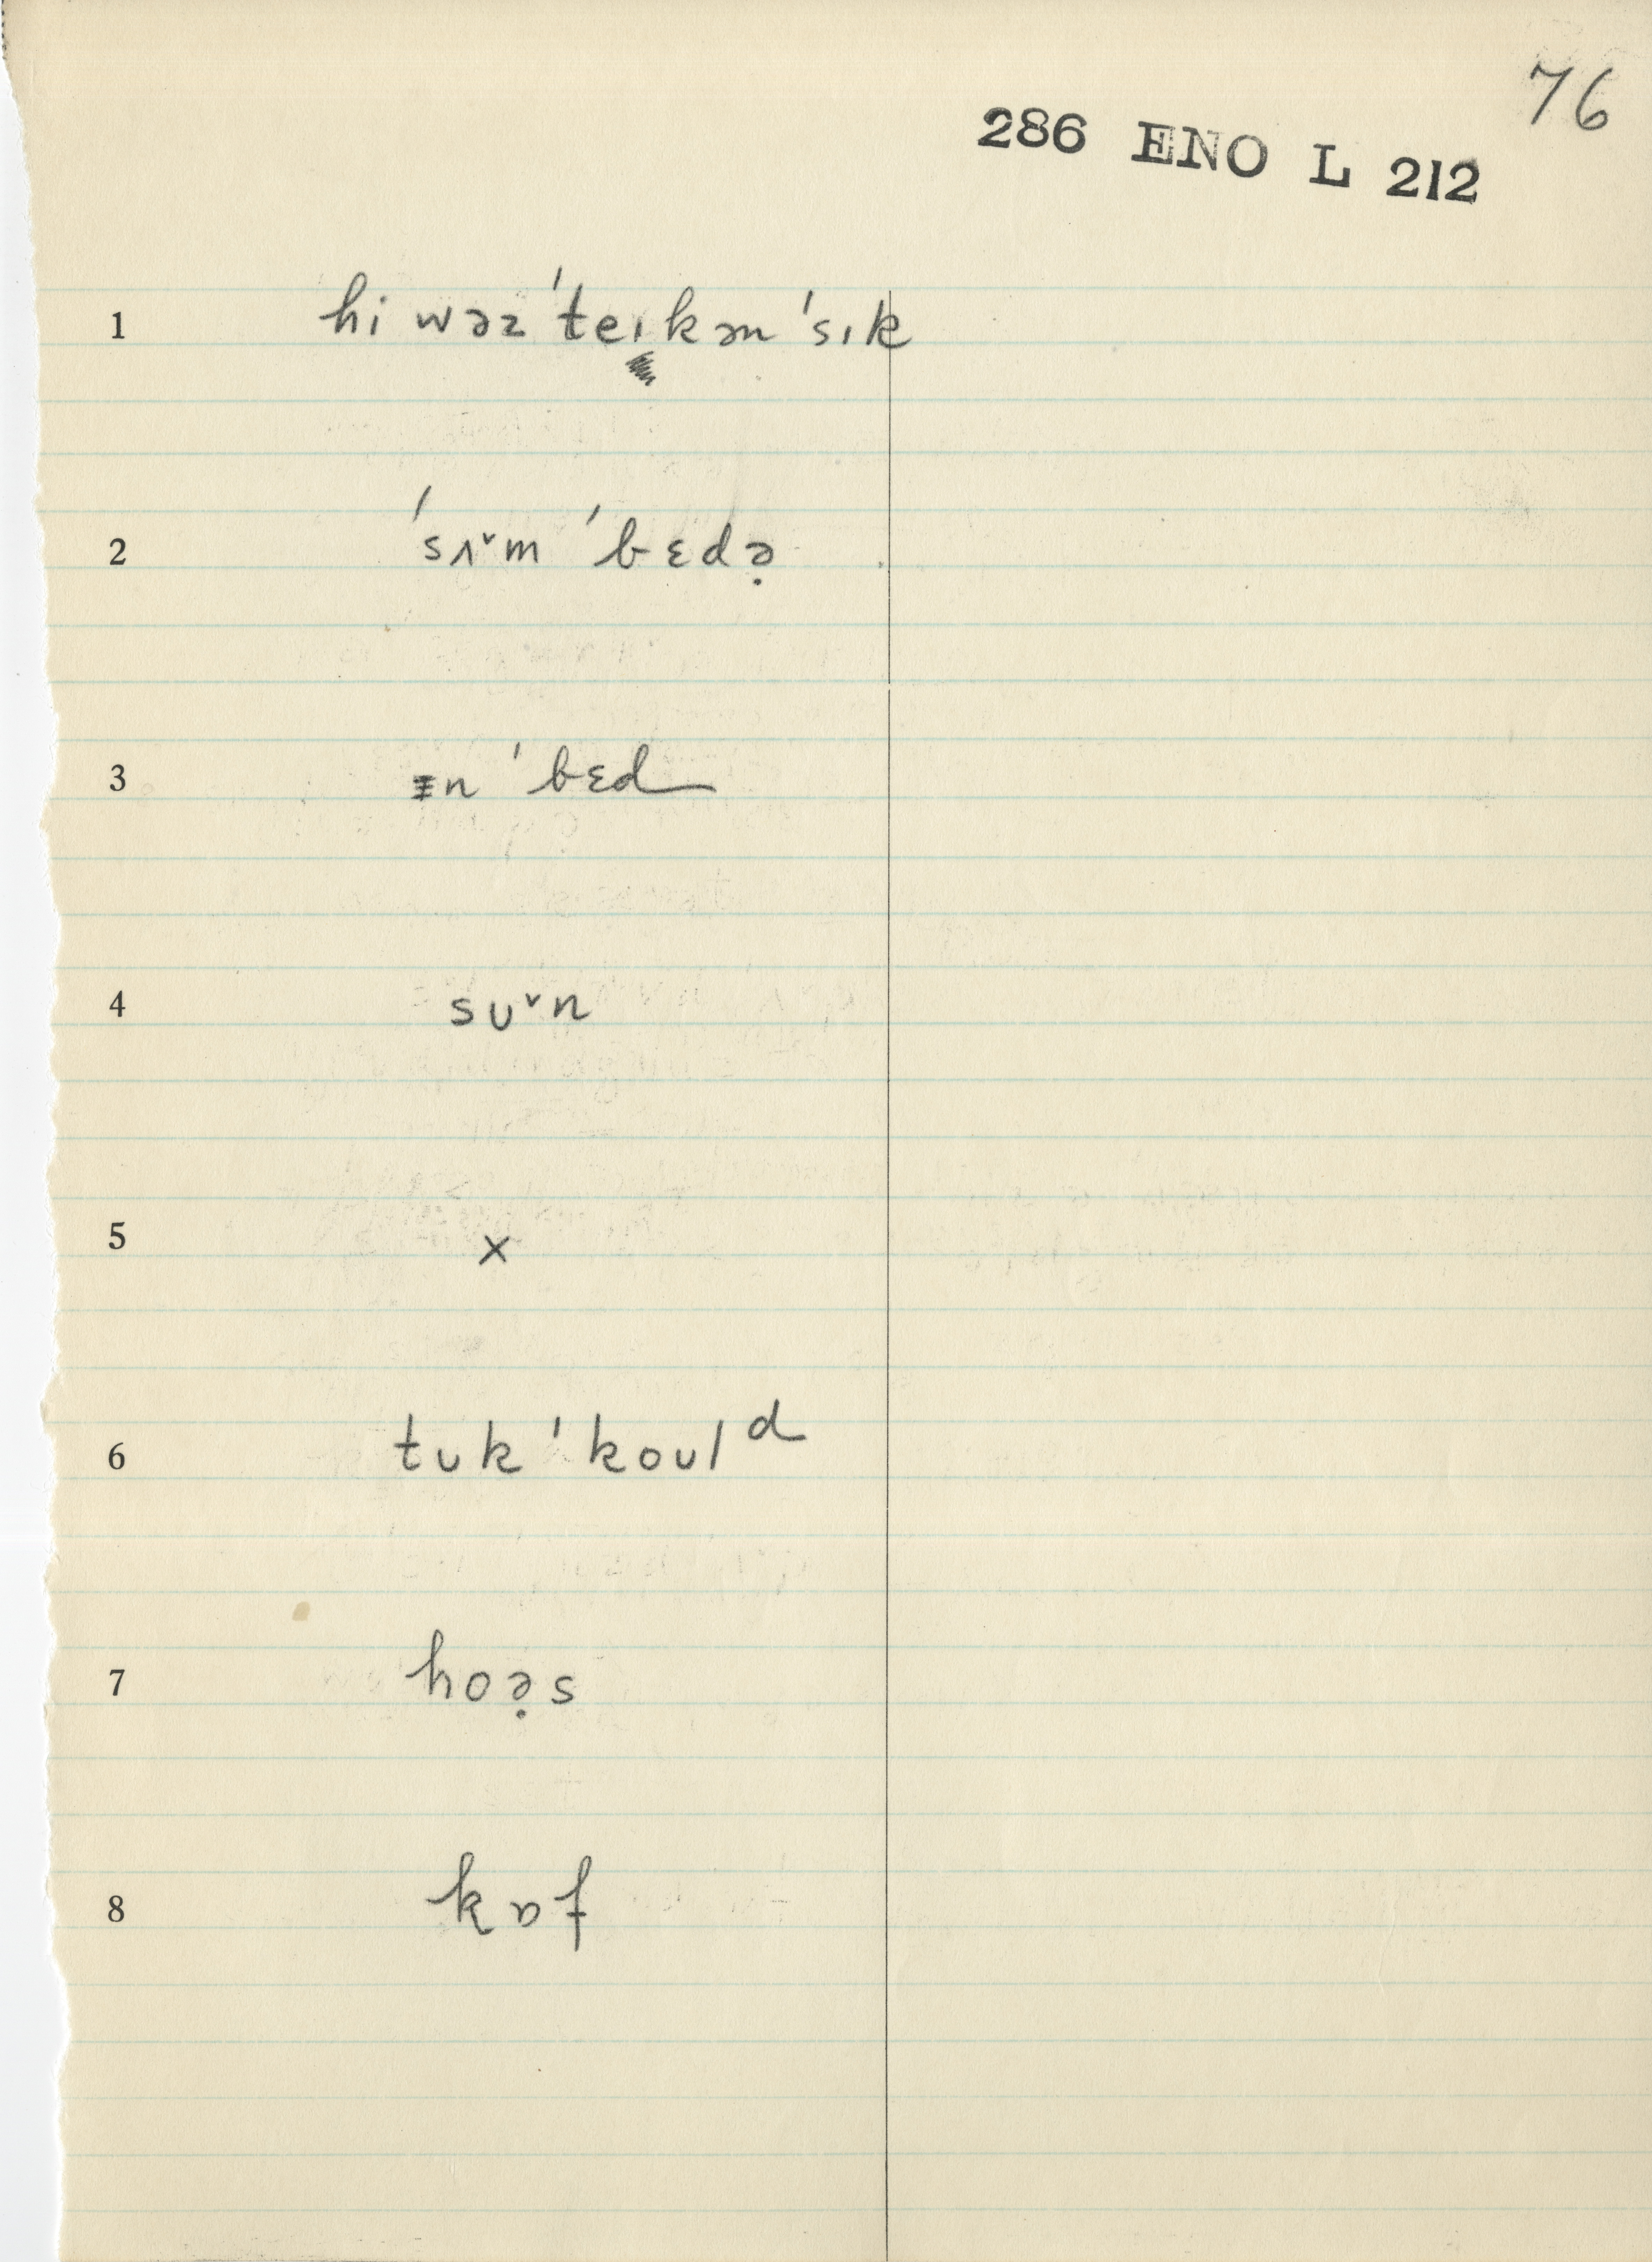 76
286 ENO L 212
1 hi wəz ˈteɪkən ˈsɪk
2 ˈsʌ˅m ˈbɛdə̣
3 ɪn ˈbɛd
4 sᴜ˅n
5 x
6 tᴜk ˈkoᴜlᵈ
7 hoə̣s
8 kɒf